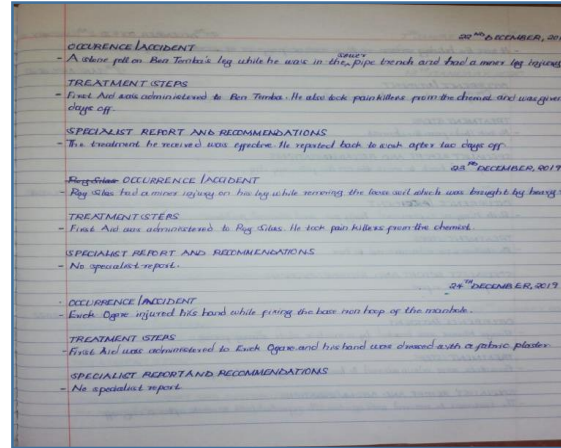 22ND DECEMBER, 201
OCCURRENCE/ACCIDENT
- A stone fell on Ben Temba's leg while he was in the sewer pipe trench and had a minor leg injury
TREATMENT STEPS
- First Aid was administered to Ben Temba. He also took painkillers from the chemist and was given
days off.
SPECIALIST REPORT AND RECOMMENDATIONS
- The treatment he received was effective. He reported back to work after two days off.
23RD DECEMBER, 2019
OCCURRENCE/ACCIDENT
- Roy Silas had a minor injury on his leg while removing the loose soil which was brought by heavy
TREATMENT STEPS
- First Aid was administered to Roy Silas. He took pain killers from the chemist.
SPECIALIST REPORT AND RECOMMENDATIONS
- No specialist report.
24TH DECEMBER, 2019
OCCURRENCE/ACCIDENT
- Erick Ogare injured his hand while fixing the base iron hoop of the manhole.
TREATMENT STEPS
- First Aid was administered to Erick Ogare and his hand was dressed with a fabric plaster.
SPECIALIST REPORT AND RECOMMENDATIONS
- No specialist report